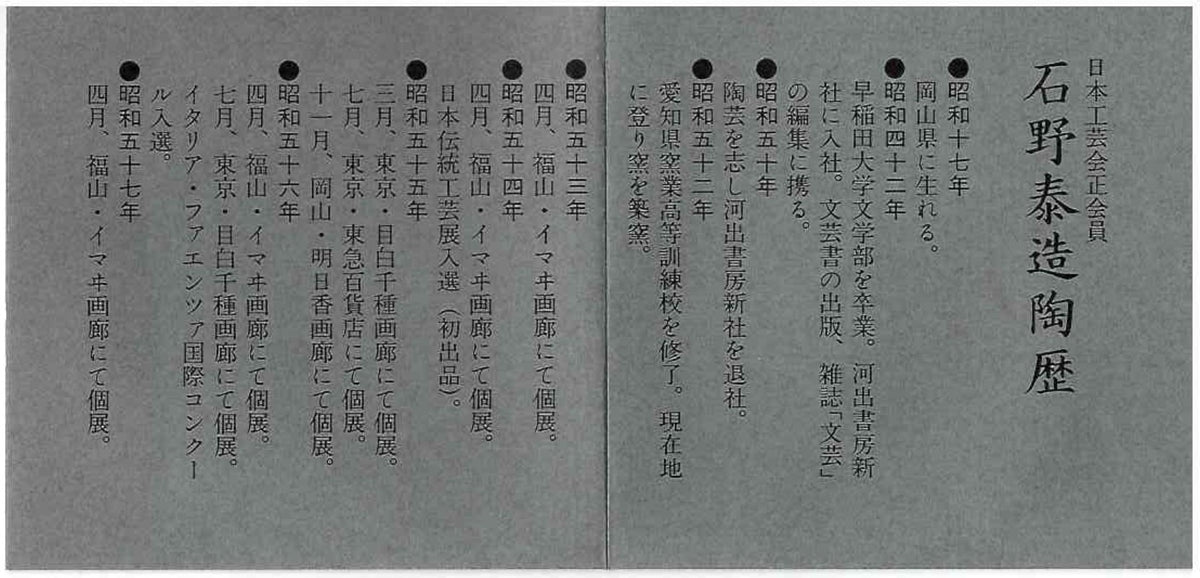 日本工芸会正会員
石野泰造陶歴
●昭和十七年
岡山県に生れる。
●昭和四十二年
早稲田大学文学部を卒業。河出書房新
社に入社。文芸書の出版、雑誌「文芸」
の編集に携る。
●昭和五十年
陶芸を志し河出書房新社を退社。
●昭和五十二年
愛知県窯業高等訓練校を修了。現在地
に登り窯を築窯。
●昭和五十三年
四月、福山・イマヰ画廊にて個展。
●昭和五十四年
四月、福山・イマヰ画廊にて個展。
日本伝統工芸展入選（初出品）。
●昭和五十五年
三月、東京・目白千種画廊にて個展。
七月、東京・東急百貨店にて個展。
十一月、岡山・明日香画廊にて個展。
●昭和五十六年
四月、福山・イマヰ画廊にて個展。
七月、東京・目白千種画廊にて個展。
イタリア・ファエンツァ国際コンクー
ル入選。
●昭和五十七年
四月、福山・イマヰ画廊にて個展。